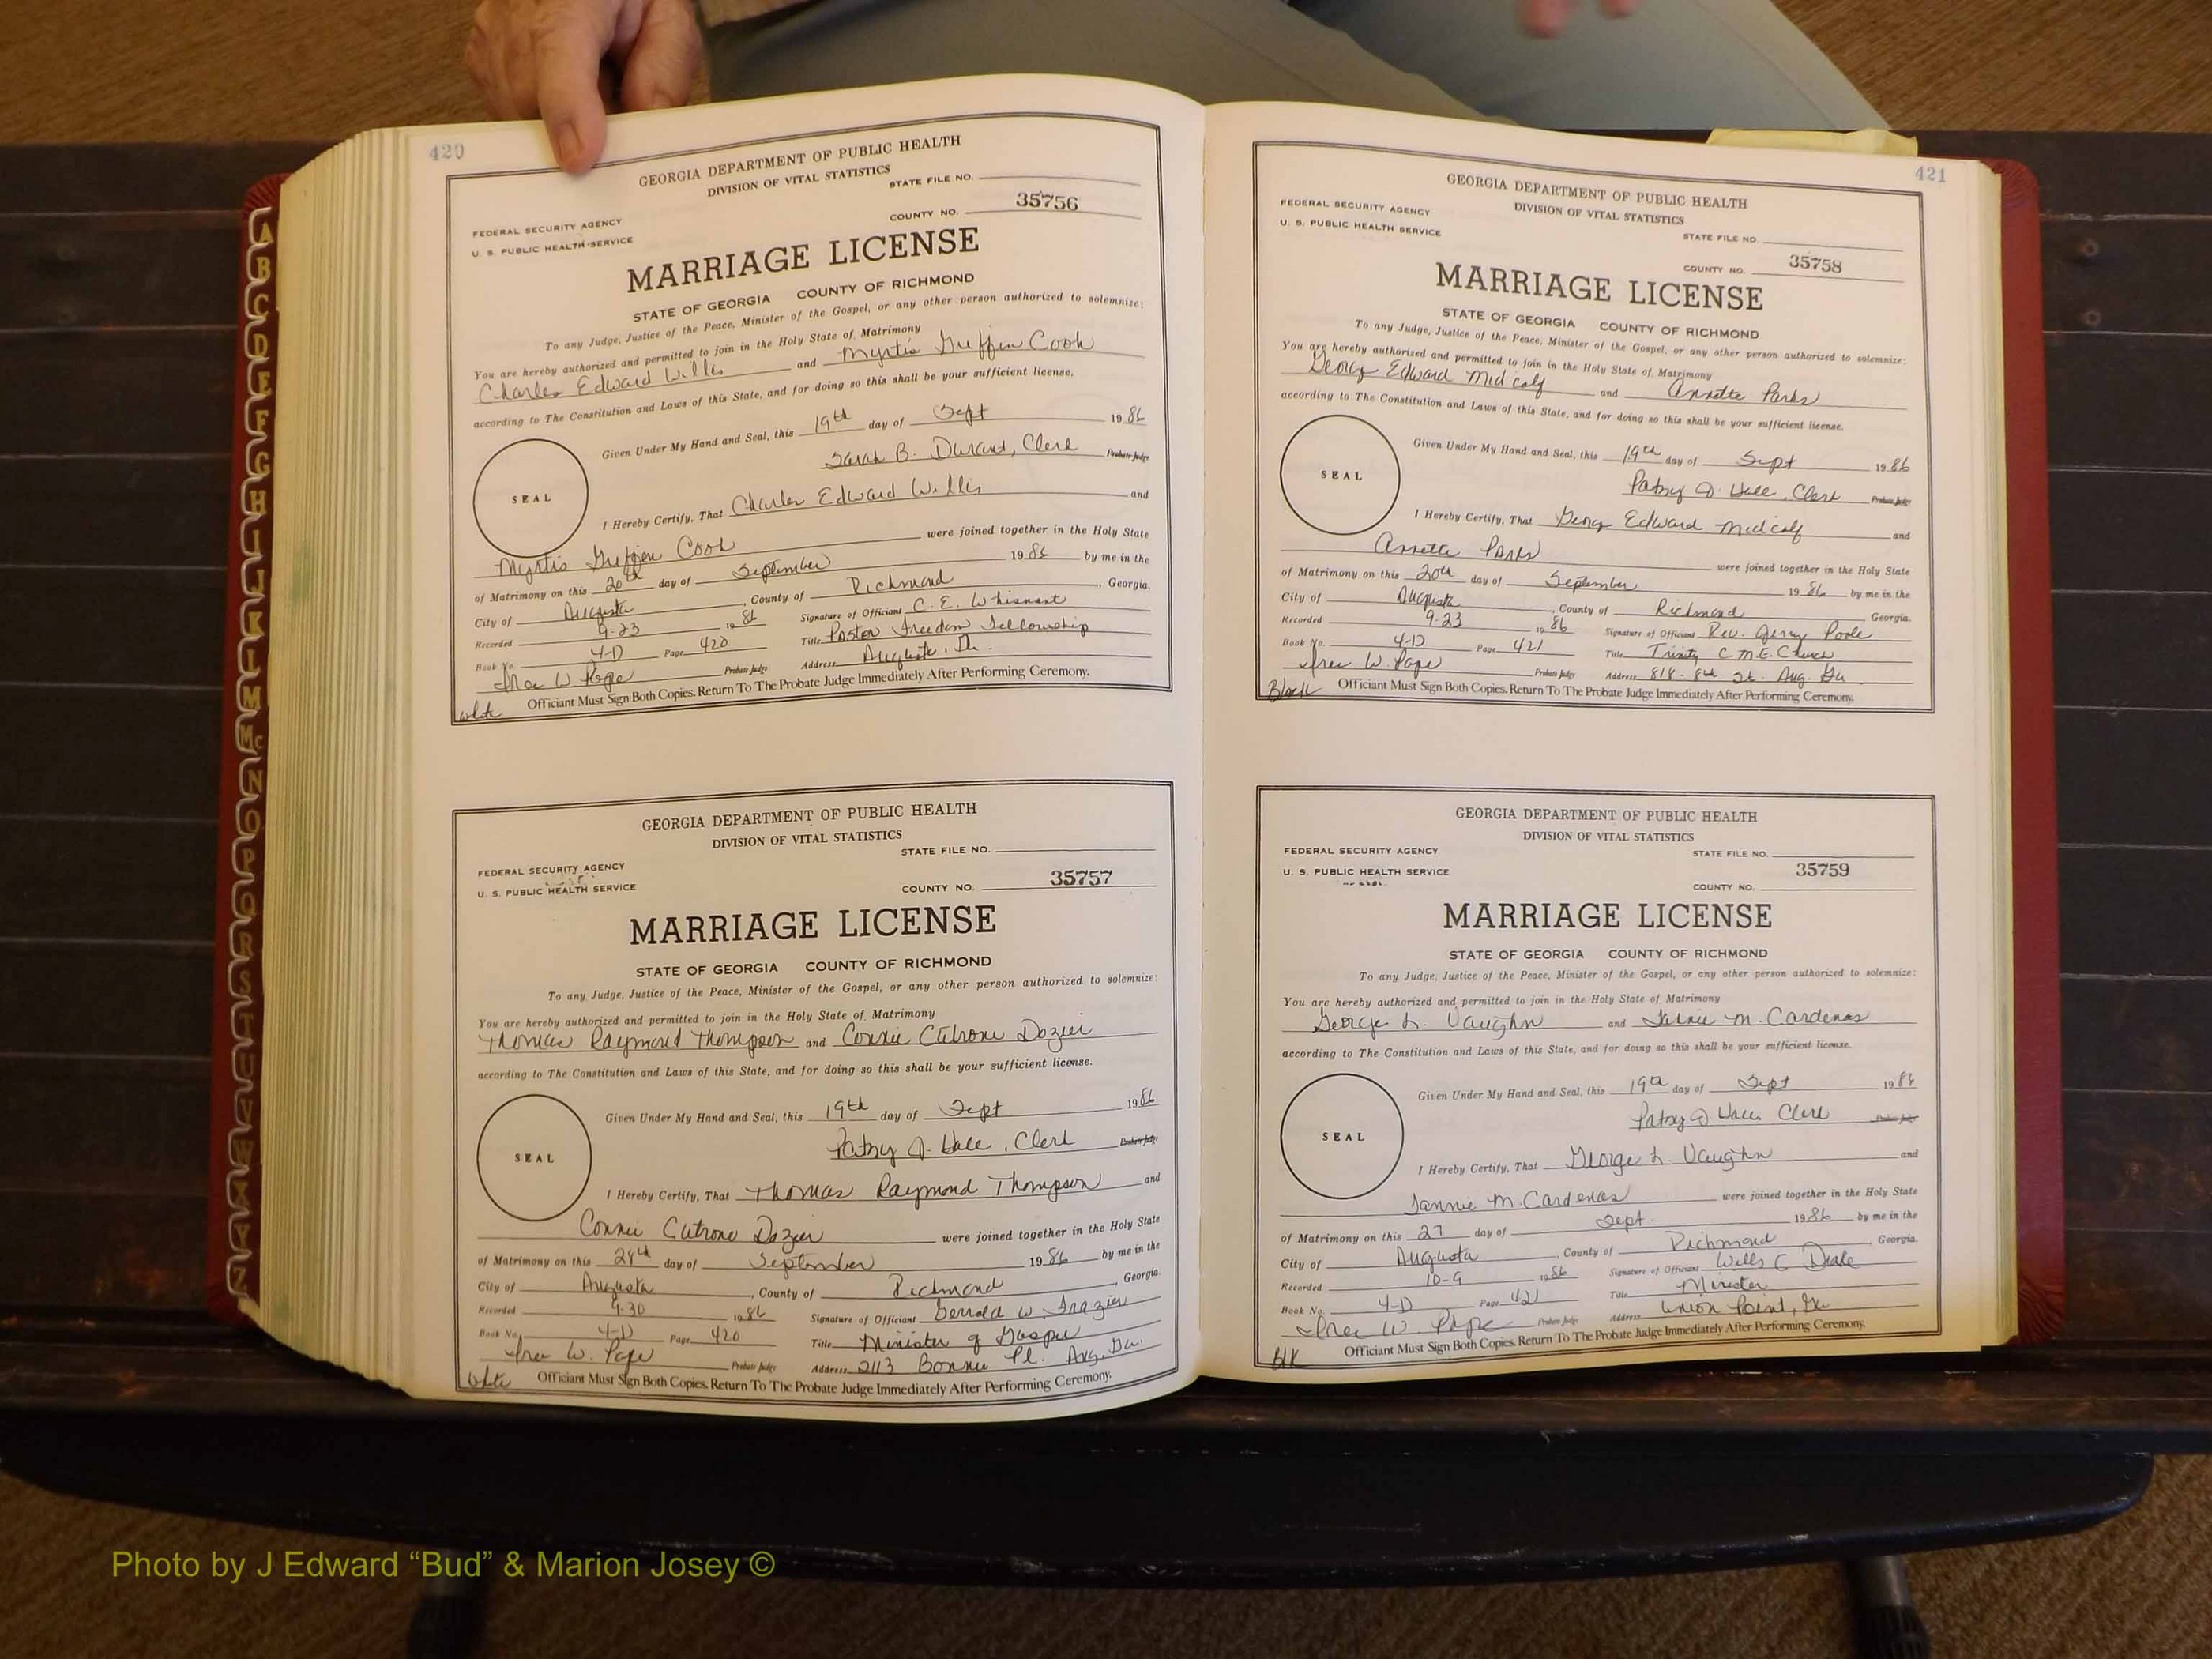 420
GEORGIA DEPARTMENT OF PUBLIC HEALTH
DIVISION OF VITAL STATISTICS
STATE FILE NO.
FEDERAL SECURITY AGENCY
COUNTY NO. 35756
U. S. PUBLIC HEALTH SERVICE
MARRIAGE LICENSE
STATE OF GEORGIA COUNTY OF RICHMOND
To any Judge, Justice of the Peace, Minister of the Gospel, or any other person authorized to solemnize:
You are hereby authorized and permitted to join in the Holy State of Matrimony
Charles Edward Willis and Myrtis Griffin Cook
according to The Constitution and Laws of this State, and for doing so this shall be your sufficient license.
Given Under My Hand and Seal, this 19th day of Sept 1986
Sarah B. Durant, Clerk Probate Judge
SEAL
I Hereby Certify, That Charles Edward Willis and
Myrtis Griffin Cook were joined together in the Holy State
of Matrimony on this 20th day of September 1986 by me in the
City of Augusta, County of Richmond, Georgia.
Recorded 9-23 1986 Signature of Officiant C. E. Whisnant
Book No. 4-D Page 420 Title Pastor Freedom Fellowship
Probate Judge Address Augusta, Ga.
Officiant Must Sign Both Copies. Return To The Probate Judge Immediately After Performing Ceremony.
White
GEORGIA DEPARTMENT OF PUBLIC HEALTH
DIVISION OF VITAL STATISTICS
STATE FILE NO.
FEDERAL SECURITY AGENCY
U. S. PUBLIC HEALTH SERVICE
COUNTY NO. 35757
MARRIAGE LICENSE
STATE OF GEORGIA COUNTY OF RICHMOND
To any Judge, Justice of the Peace, Minister of the Gospel, or any other person authorized to solemnize:
You are hereby authorized and permitted to join in the Holy State of Matrimony
Thomas Raymond Thompson and Connie Cutrone Dozier
according to The Constitution and Laws of this State, and for doing so this shall be your sufficient license.
Given Under My Hand and Seal, this 19th day of Sept 1986
Patsy Clerk Probate Judge
SEAL
I Hereby Certify, That Thomas Raymond Thompson and
Connie Cutrone Dozier were joined together in the Holy State
of Matrimony on this day of September 1986 by me in the
City of Augusta, County of Richmond, Georgia.
Recorded 9-30 1986 Signature of Officiant Gerrald W. Frazier
Book No. 4-D Page 420 Title Minister of Gospel
W. Pope Probate Judge Address 2113 Bonnie Pl. Aug. Ga.
Officiant Must Sign Both Copies. Return To The Probate Judge Immediately After Performing Ceremony.
White
421
GEORGIA DEPARTMENT OF PUBLIC HEALTH
DIVISION OF VITAL STATISTICS
FEDERAL SECURITY AGENCY
U. S. PUBLIC HEALTH SERVICE
STATE FILE NO.
COUNTY NO. 35758
MARRIAGE LICENSE
STATE OF GEORGIA COUNTY OF RICHMOND
To any Judge, Justice of the Peace, Minister of the Gospel, or any other person authorized to solemnize:
You are hereby authorized and permitted to join in the Holy State of Matrimony
George Edward Midcalf and Annette Parks
according to The Constitution and Laws of this State, and for doing so this shall be your sufficient license.
Given Under My Hand and Seal, this 19th day of Sept 1986
Patsy Clerk Probate Judge
SEAL
I Hereby Certify, That George Edward Midcalf and
Annette Parks were joined together in the Holy State
of Matrimony on this 20th day of September 1986 by me in the
City of Augusta, County of Richmond Georgia.
Recorded 9-23 1986 Signature of Officiant Rev. Poole
Book No. 4-D Page 421 Title Trinity C.M.E. Church
W. Pope Probate Judge Address 818-8th St. Aug. Ga.
Officiant Must Sign Both Copies. Return To The Probate Judge Immediately After Performing Ceremony.
Black
GEORGIA DEPARTMENT OF PUBLIC HEALTH
DIVISION OF VITAL STATISTICS
FEDERAL SECURITY AGENCY
STATE FILE NO.
U. S. PUBLIC HEALTH SERVICE
COUNTY NO. 35759
MARRIAGE LICENSE
STATE OF GEORGIA COUNTY OF RICHMOND
To any Judge, Justice of the Peace, Minister of the Gospel, or any other person authorized to solemnize:
You are hereby authorized and permitted to join in the Holy State of Matrimony
George L. Vaughn and M. Cardenas
according to The Constitution and Laws of this State, and for doing so this shall be your sufficient license.
Given Under My Hand and Seal, this 19th day of Sept 1986
Patsy Clerk Probate Judge
SEAL
I Hereby Certify, That George L. Vaughn and
M. Cardenas were joined together in the Holy State
of Matrimony on this 27 day of Sept. 1986 by me in the
City of Augusta, County of Richmond, Georgia.
Recorded 10-9 1986 Signature of Officiant Drake
Book No. 4-D Page 421 Title Minister
W Pope Probate Judge Address Union Point, Ga
Officiant Must Sign Both Copies. Return To The Probate Judge Immediately After Performing Ceremony.
Blk
A
B
C
D
E
F
G
H
I
J
K
L
M
Mc
N
O
P
Q
R
S
T
U
V
W
X
Y
Z
Photo by J Edward “Bud” & Marion Josey ©